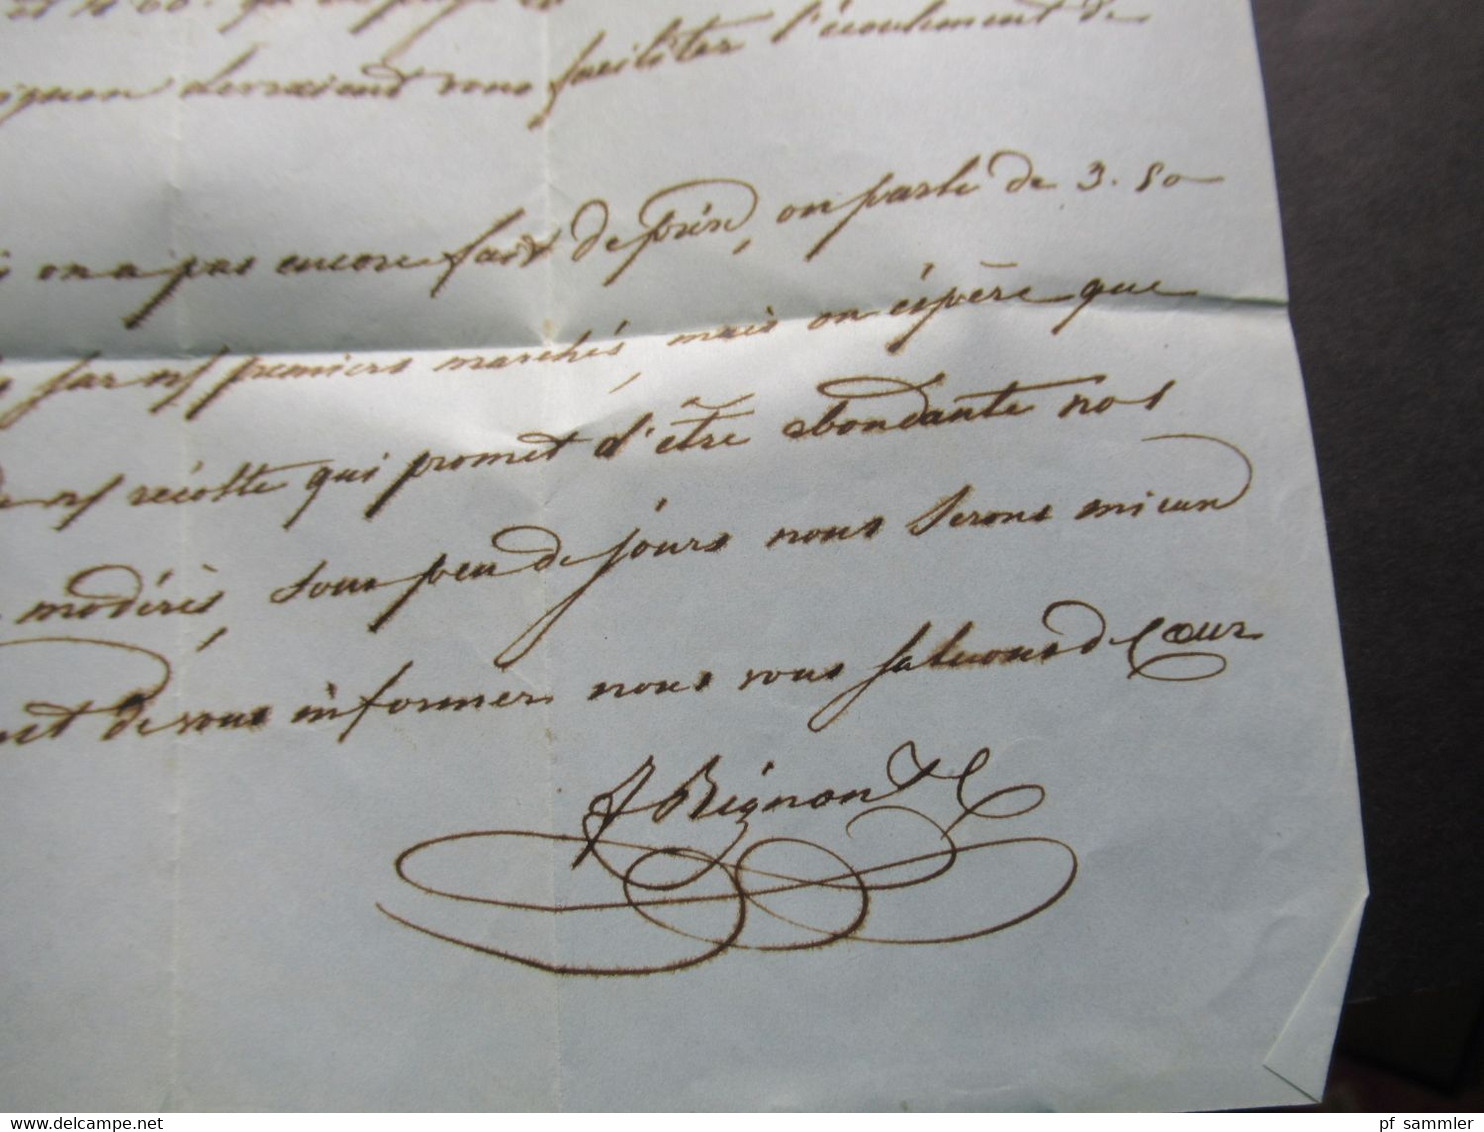 devraient vous faciliter l'écoulement de
on a pas encore fait de prix, on parle de 3.50
sur nos premiers marchés, mais on éspère que
récolte qui promet d'être abondante nos
modérés, sous peu de jours nous serons mieux
de vous informer nous vous saluons de Cœur
J Bignon
www.delcampe.net
pf_sammler